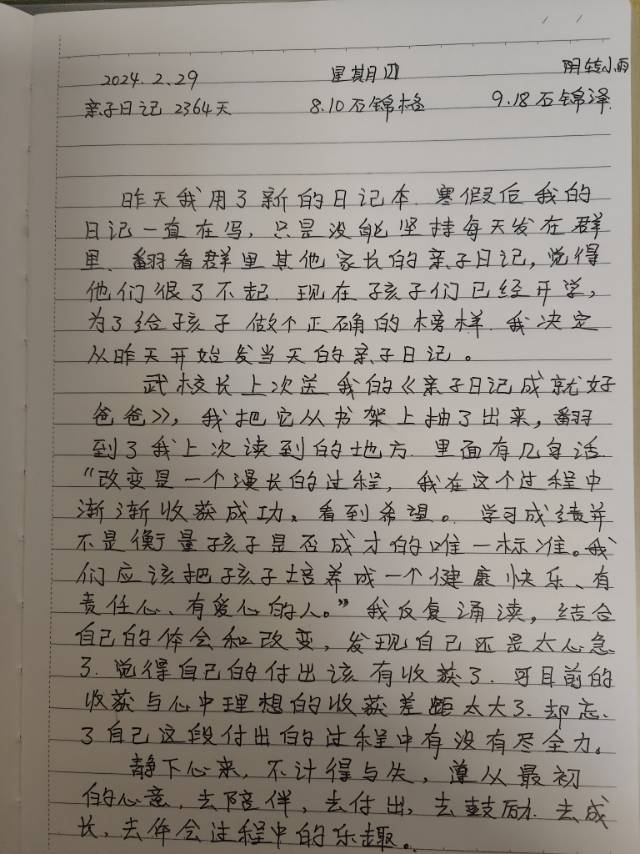 2024.2.29 星期四 阴转小雨
亲子日记 2364天 8.10石锦格 9.18石锦泽
昨天我用了新的日记本.寒假后我的
日记一直在写,只是没能坚持每天发在群
里、翻看群里其他家长的亲子日记,觉得
他们很了不起.现在孩子们已经开学,
为了给孩子做个正确的榜样.我决定
从昨天开始发当天的亲子日记。
武校长上次送我的《亲子日记成就好
爸爸》,我把它从书架上抽了出来,翻
到了我上次读到的地方.里面有几句话
“改变是一个漫长的过程,我在这个过程中
渐渐收获成功、看到希望。学习成绩并
不是衡量孩子是否成才的唯一标准。我
们应该把孩子培养成一个健康快乐、有
责任心、有爱心的人。”我反复诵读,结合
自己的体会和改变,发现自己还是太心急
了.觉得自己的付出该有收获了.可目前的
收获与心中理想的收获差距太大了.却忘
了自己这段付出的过程中有没有尽全力。
静下心来,不计得与失,遵从最初
的心意,去陪伴,去付出,去鼓励.去成
长,去体会过程中的乐趣。